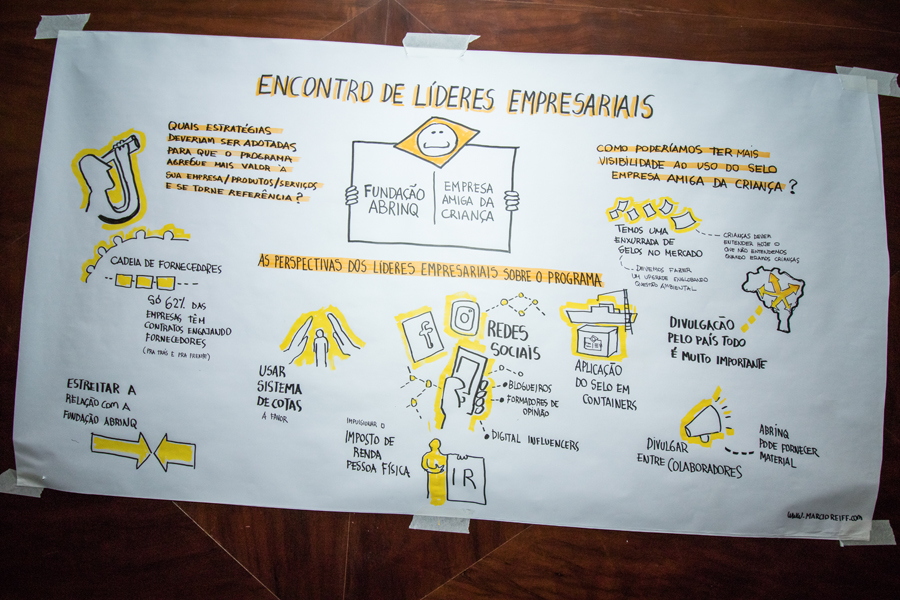 ENCONTRO DE LÍDERES EMPRESARIAIS
QUAIS ESTRATÉGIAS
DEVERIAM SER ADOTADAS
PARA QUE O PROGRAMA
AGREGUE MAIS VALOR À
SUA EMPRESA/PRODUTOS/SERVIÇOS
E SE TORNE REFERÊNCIA?
FUNDAÇÃO
ABRINQ
EMPRESA
AMIGA DA
CRIANÇA
COMO PODERÍAMOS TER MAIS
VISIBILIDADE AO USO DO SELO
EMPRESA AMIGA DA CRIANÇA?
CADEIA DE FORNECEDORES
SÓ 62% DAS
EMPRESAS TÊM
CONTRATOS ENGAJANDO
FORNECEDORES
(PRA TRÁS E PRA FRENTE)
ESTREITAR A
RELAÇÃO COM A
FUNDAÇÃO ABRINQ
AS PERSPECTIVAS DOS LÍDERES EMPRESARIAIS SOBRE O PROGRAMA
USAR
SISTEMA
DE COTAS
A FAVOR
f
REDES
SOCIAIS
BLOGUEIROS
FORMADORES DE
OPINIÃO
DIGITAL INFLUENCERS
IMPULSIONAR O
IMPOSTO DE
RENDA
PESSOA FÍSICA
IR
APLICAÇÃO
DO SELO EM
CONTAINERS
TEMOS UMA
ENXURRADA DE
SELOS NO MERCADO
CRIANÇAS DEVEM
ENTENDER HOJE O
QUE NÃO ENTENDEMOS
QUANDO ÉRAMOS CRIANÇAS
DEVEMOS FAZER
UM UPGRADE ENGLOBANDO
QUESTÃO AMBIENTAL
DIVULGAÇÃO
PELO PAÍS TODO
É MUITO IMPORTANTE
DIVULGAR
ENTRE COLABORADORES
ABRINQ
PODE FORNECER
MATERIAL
www.MARCIOREIFF.com